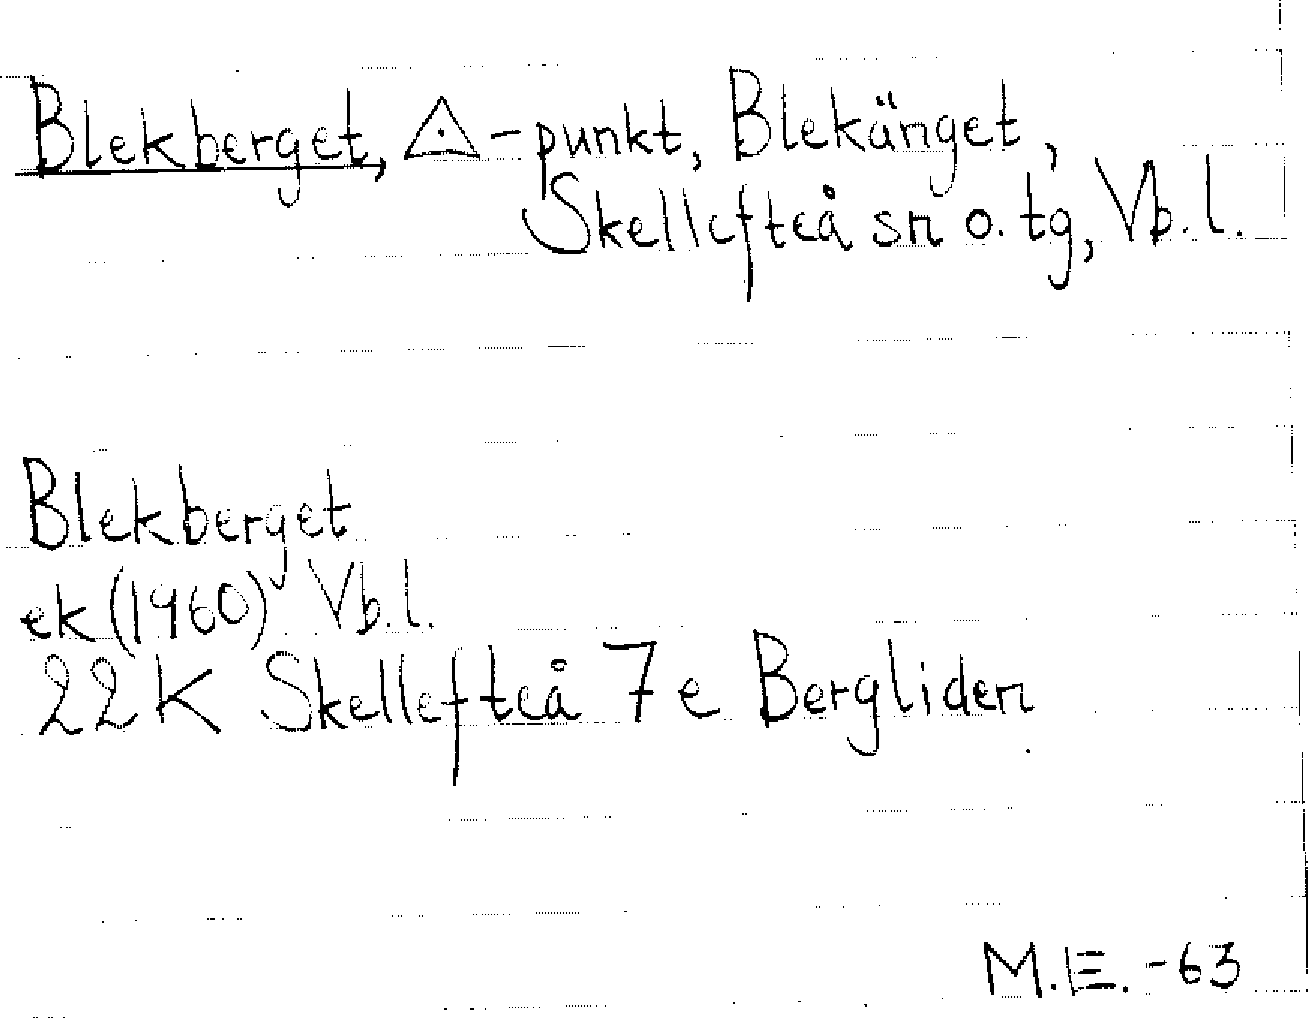 Blekberget, △-punkt, Blekänget,
Skellefteå sn o. tg, Vb.l.
Blekberget
ek (1960) Vb.l.
22K Skellefteå 7e Bergliden
M.E. -63